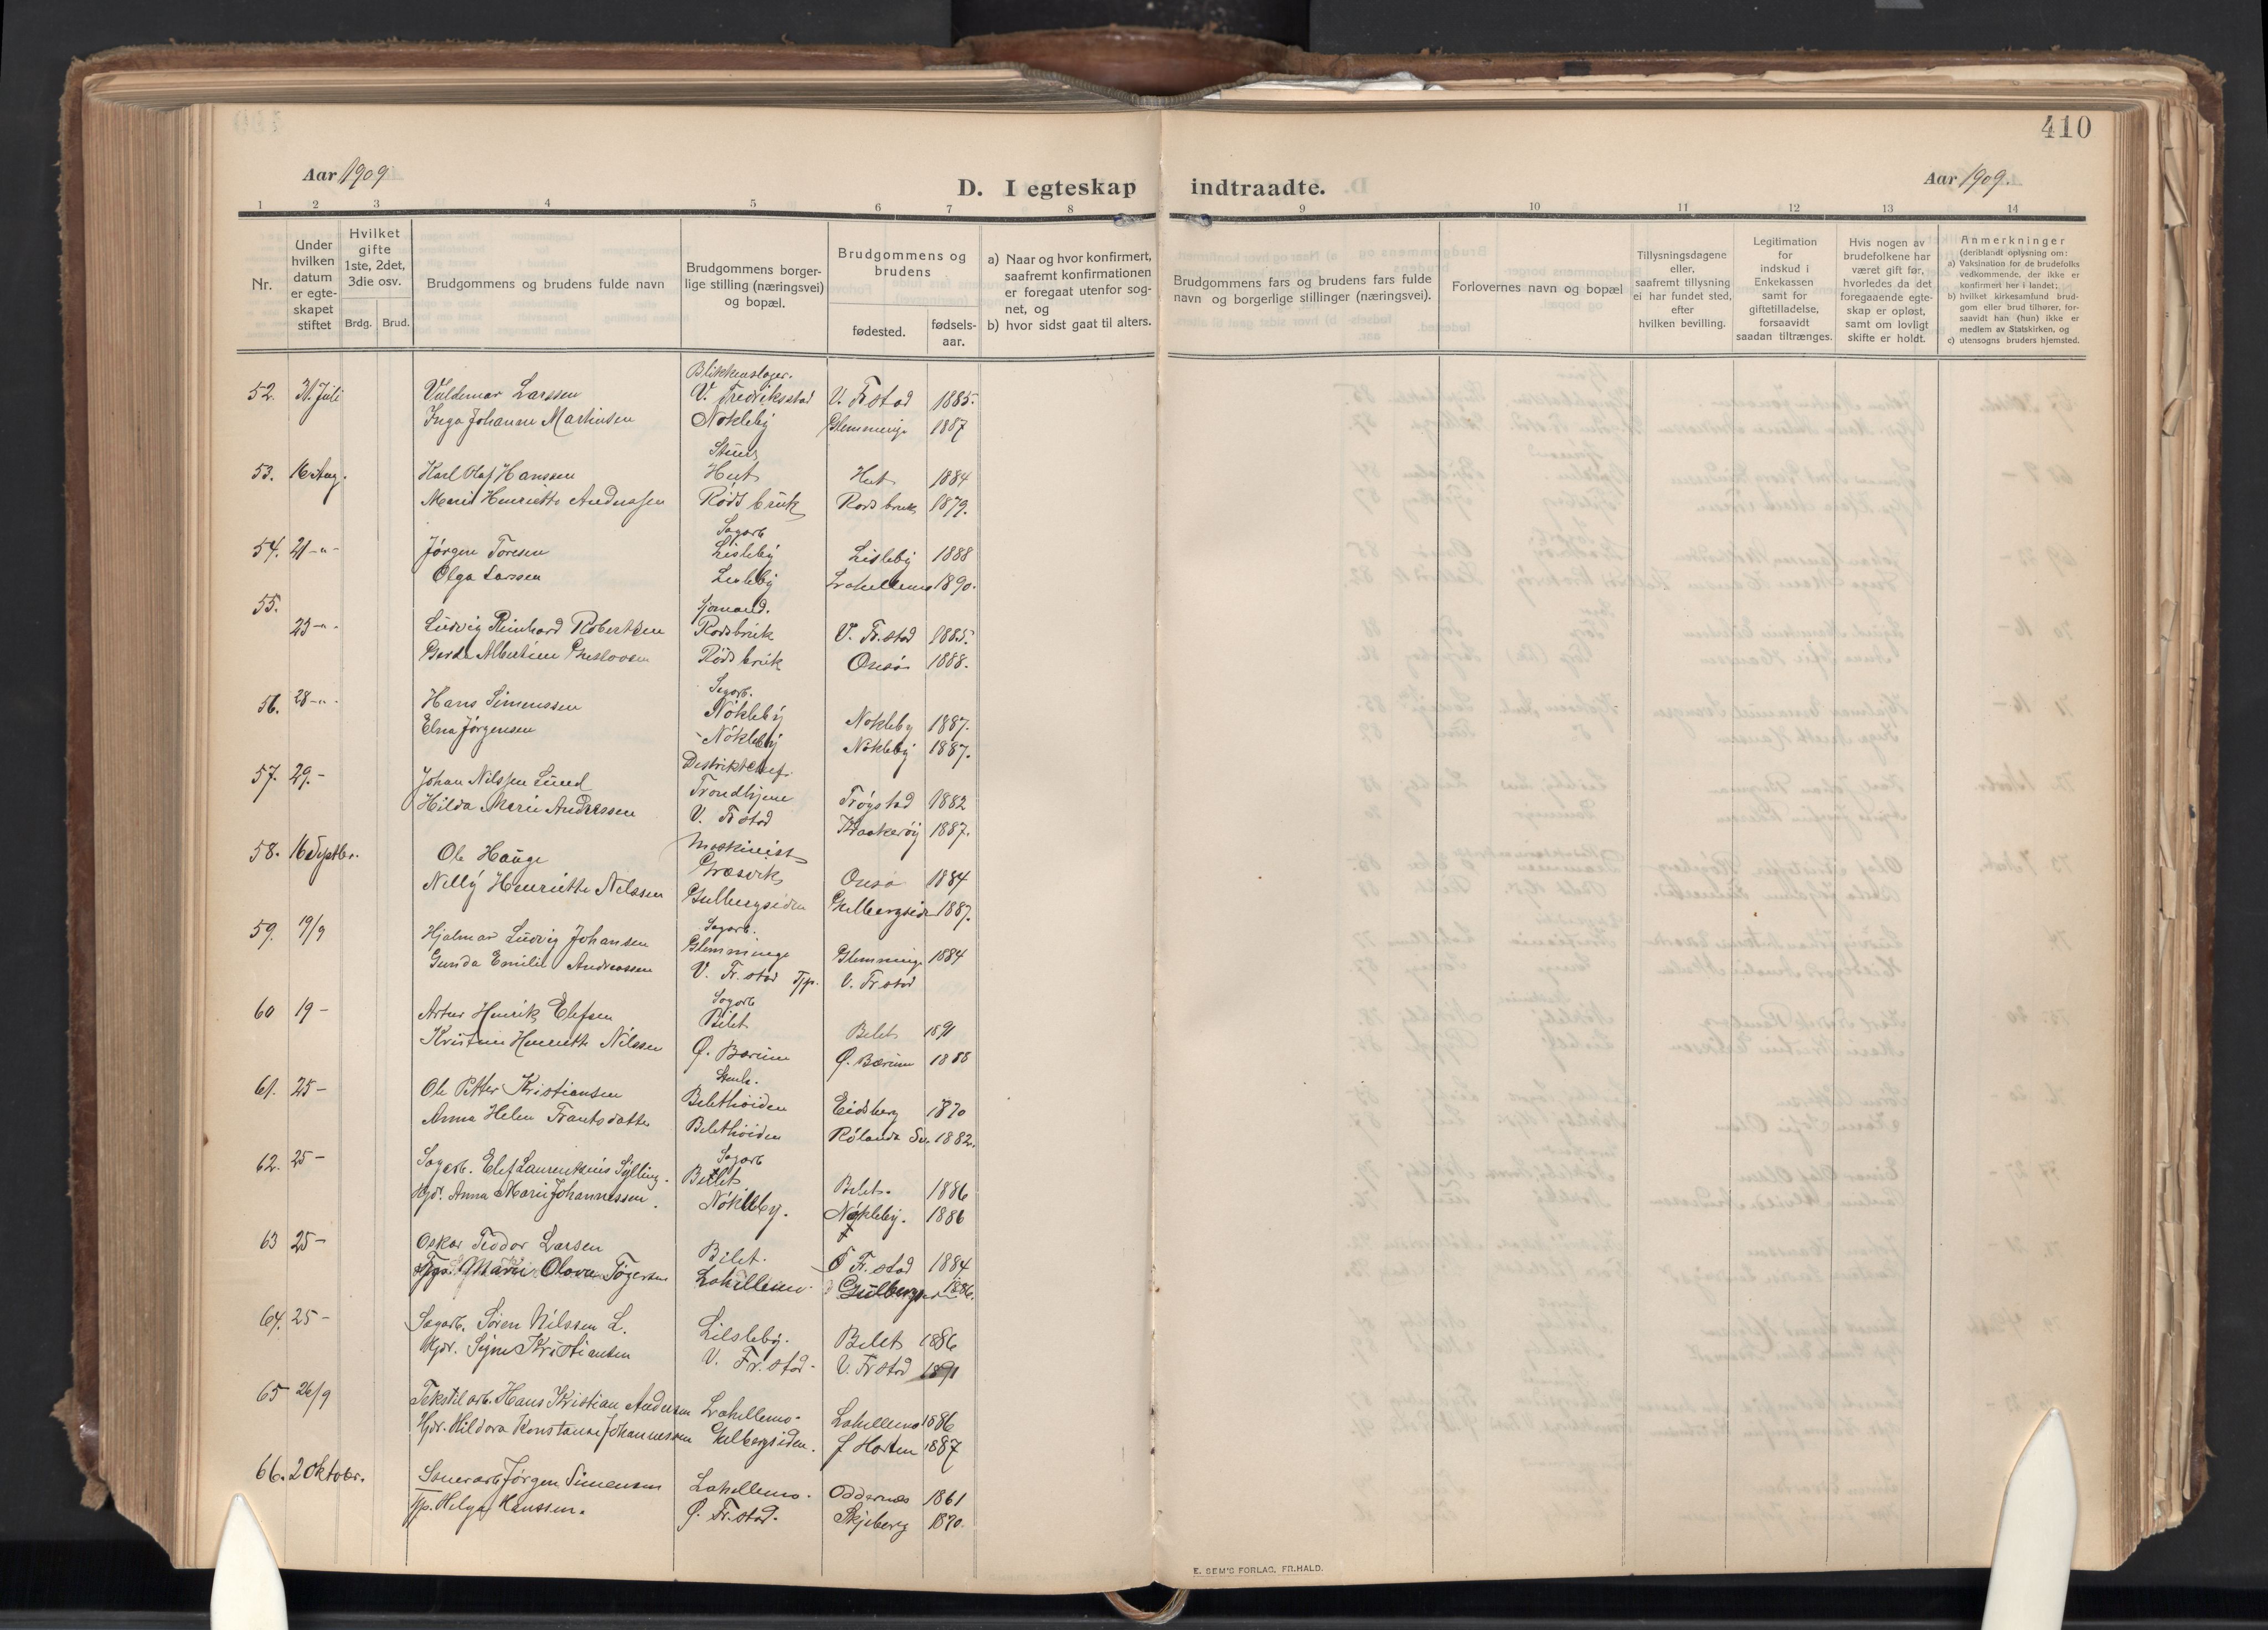 410
Aar 1909
D. I egteskap indtraadte.
Aar 1909.
1 2 3 4 5 6 7 8 9 10 11 12 13 14
Nr.
Under hvilken datum er egte- skapet stiftet
Hvilket gifte 1ste, 2det, 3die osv.
Brdg. Brud.
Brudgommens og brudens fulde navn
Brudgommens borger- lige stilling (næringsvei) og bopæl.
Brudgommens og brudens
fødested.
fødsels- aar.
a) Naar og hvor konfirmert, saafremt konfirmationen er foregaat utenfor sog- net, og
b) hvor sidst gaat til alters.
Brudgommens fars og brudens fars fulde navn og borgerlige slillinger (næringsvei).
Forlovernes navn og bopæl
Tillysningsdagene eller, saafremt tillysning ei har fundet sted, efter hvilken bevilling.
Legitimation for indskud i Enkekassen samt for giftetilladelse, forsaavidt saadan tiltrænges.
Hvis nogen av brudefolkene har været gift før, hvorledes da det foregaaende egte- skap er opløst, samt om lovligt skifte er holdt.
Anmerkninger (deriblandt oplysning om:
a) Vaksination for de brudefolks vedkommende, der ikke er konfirmert her i landet;
b) hvilket kirkesamfund brud- gom eller brud tilhører, for- saavidt han (hun) ikke er medlem av Statskirken, og
c) utensogns bruders hjemsted.
Blikkenslager.
52. 31. Juli Valdemar Larssen V. Fredriksstad V. Frstad 1885.
Inga Johanne Martinsen Nokleby Glemminge 1887
53. 16 Aug. Karl Olaf Hanssen Hut Hut 1884
Marie Henriette Andreassen Röds bruk Rods bruk 1879.
Sagarb
54. 21 -"- Jörgen Toresen Lisleby Lisleby 1888
Olga Larssen Lisleby Lahellemo 1890.
Sjomand.
55. 23 -"- Ludvig Reinhard Robertsen Rodsbruk V. Fr.stad 1885.
Gerda Albertine Gustavsen Röds bruk Onsö 1888.
Sagarb.
56. 28 -"- Hans Simenssen Nökleby Nokleby 1887.
Elna Jørgensen Nökleby Nökleby 1887.
57. 29. - Johan Nilssen Lund Trondhjem Trögstad 1882
Hilda Marie Andressen V. Frstad Kraakeröy 1887.
Maskinist
58. 16 Septbr. Ole Hauge Græsvik Onsö 1884
Nelly Henriette Nilssen Gulbergsiden Gulbergsiden 1887.
Sagarb.
59. 19/9 Hjalmar Ludvig Johansen Glemminge Glemminge 1884
Gunda Emilie Andreassen V. Fr.stad Tjp. V. Fr.stad
Sagarb
60 19 - Artur Henrik Elefsen Bilet Bilet 1891
Kristine Henriette Nilssen Ø. Bærum Ø. Bærum 1888
61. 25 - Ole Petter Kristiansen Bilethöiden Eidsberg 1870
Anna Helen Frantsdatter Bilethöiden Rölanda Sv. 1882.
Sagarb
62. 25 - Sagarb. Elef Laurentsius Sylling. Bilet Bilet. 1886
Hjdr. Anna Marie Johannessen. Nökleby. Nökleby. 1886
63 25 - Oskar Teodor Larsen Bilet. Ö Fr.stad 1884
Marie Olava Lahellemo. 1886.
64. 25 - Sagarb. Sören Nilssen L. Lilsleby. Bilet 1886
Hjdr. Signe Kristiansen V. Fr.stad. V. Frstad 1891
65 26/9 Tekstilarb. Hans Kristian Andersen Lahellemo. Lahellemo 1886
Hjdr. Hildora Konstanse Johannessen Gulbergsiden. Horten 1887
66. 2 Oktober. Jörgen Simensen Lahellemo. Oddernes 1861
Tjp. Helga Hanssen. Ø. Fr.stad. Skjeberg 1870.
E. SEM'S FORLAG, FR.HALD.